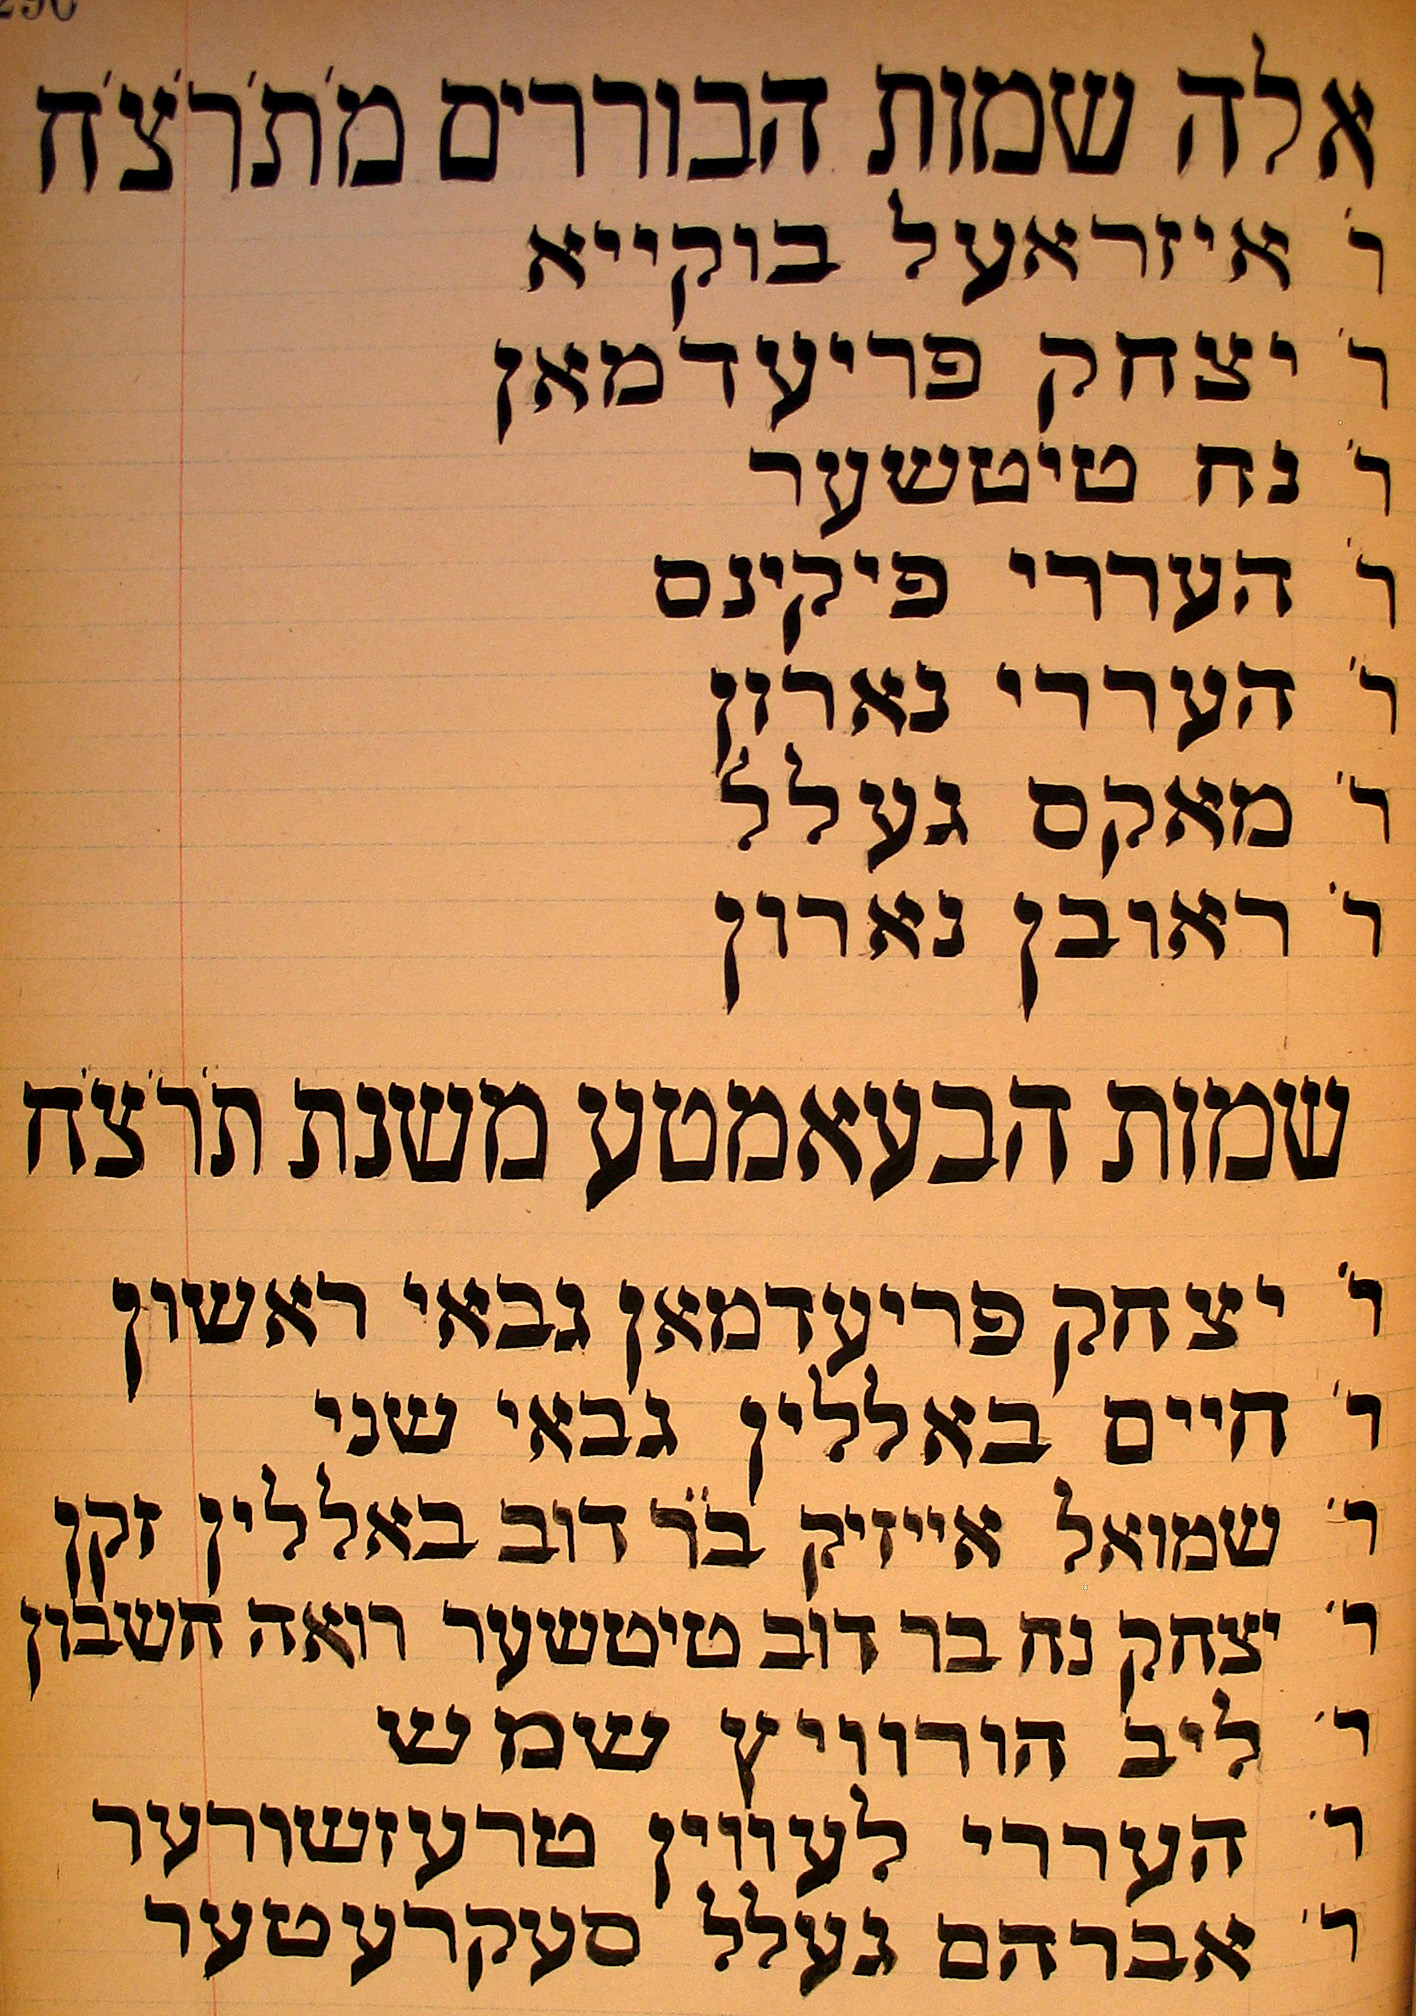 290
אלה שמות הבוררים מ'ת'ר'צ'ח
ר' איזראעל בוקייא
ר' יצחק פריעדמאן
ר' נח טיטשער
ר' העררי פיקינס
ר' העררי נארווין
ר' מאקס געלל
ר' ראובן נארוין
שמות הבעאמטע משנת ת'ר'צ'ח
ר' יצחק פריעדמאן גבאי ראשון
ר' חיים באללין גבאי שני
ר' שמואל אייזיק ב"ר דוב באללין זקן
ר' יצחק נח בר דוב טיטשער רואה חשבון
ר' ליב הורוויץ שמש
ר' העררי לעווין טרעזשורער
ר' אברהם געלל סעקרעטער